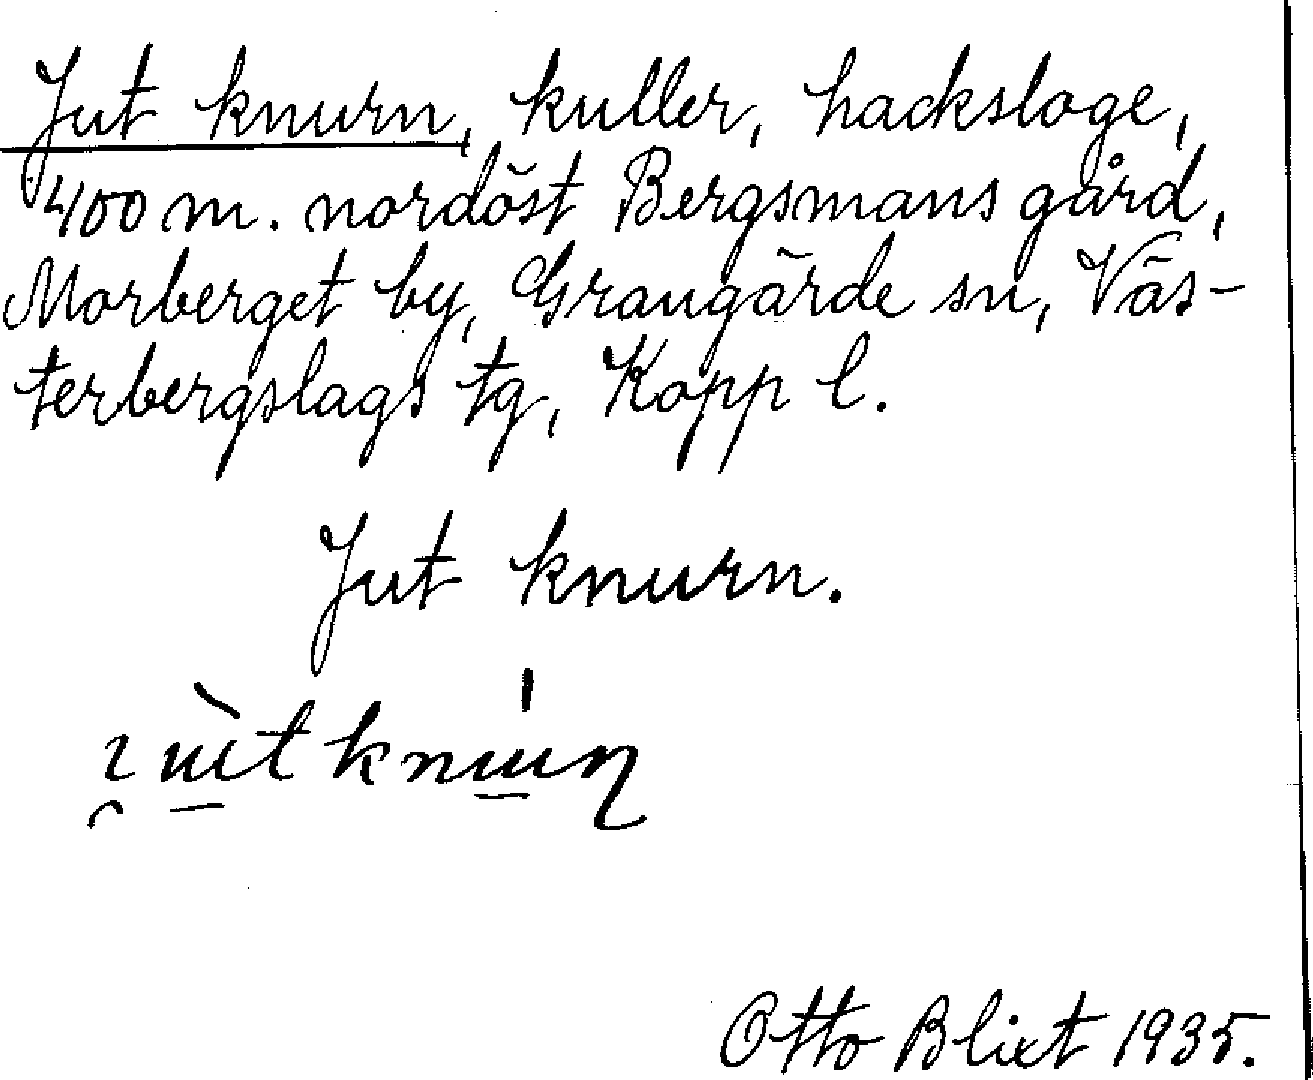 Jut knurn, kuller, hacksloge,
400 m. nordöst Bergsmans gård,
Morberget by, Grangärde sn, Väs-
terbergslags tg, Kopp l.
Jut knurn.
Otto Blixt 1935.